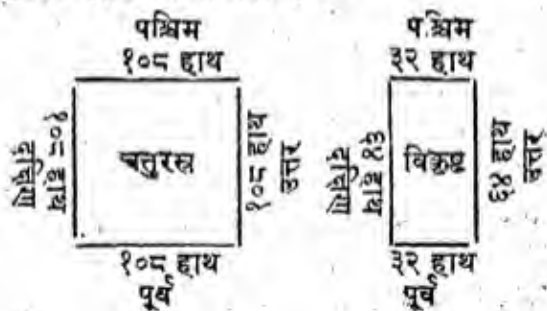 पश्चिम
१०८ हाथ
दक्षिण
१०८ हाथ
चतुरस्र
१०८ हाथ
उत्तर
१०८ हाथ
पूर्व
पश्चिम
३२ हाथ
दक्षिण
६४ हाथ
विकृष्ट
६४ हाथ
उत्तर
३२ हाथ
पूर्व